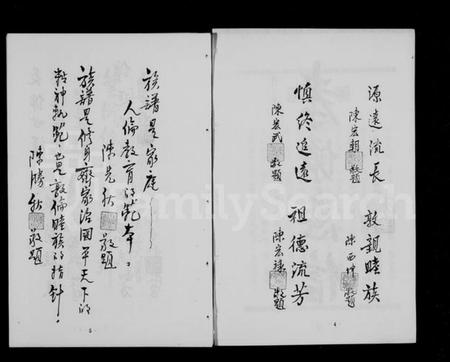 源遠流長
陳宏朝 敬題
敦親睦族
陳西 敬題
慎終追遠
陳宏武 敬題
祖德流芳
陳宏 敬題
4
族譜是家庭
人倫教育的範本。
陳光秋 敬題
族譜是修身齊家治國平天下的
精神凱 也是敦倫睦族的指針。
陳勝 敬題
5
FamilySearch